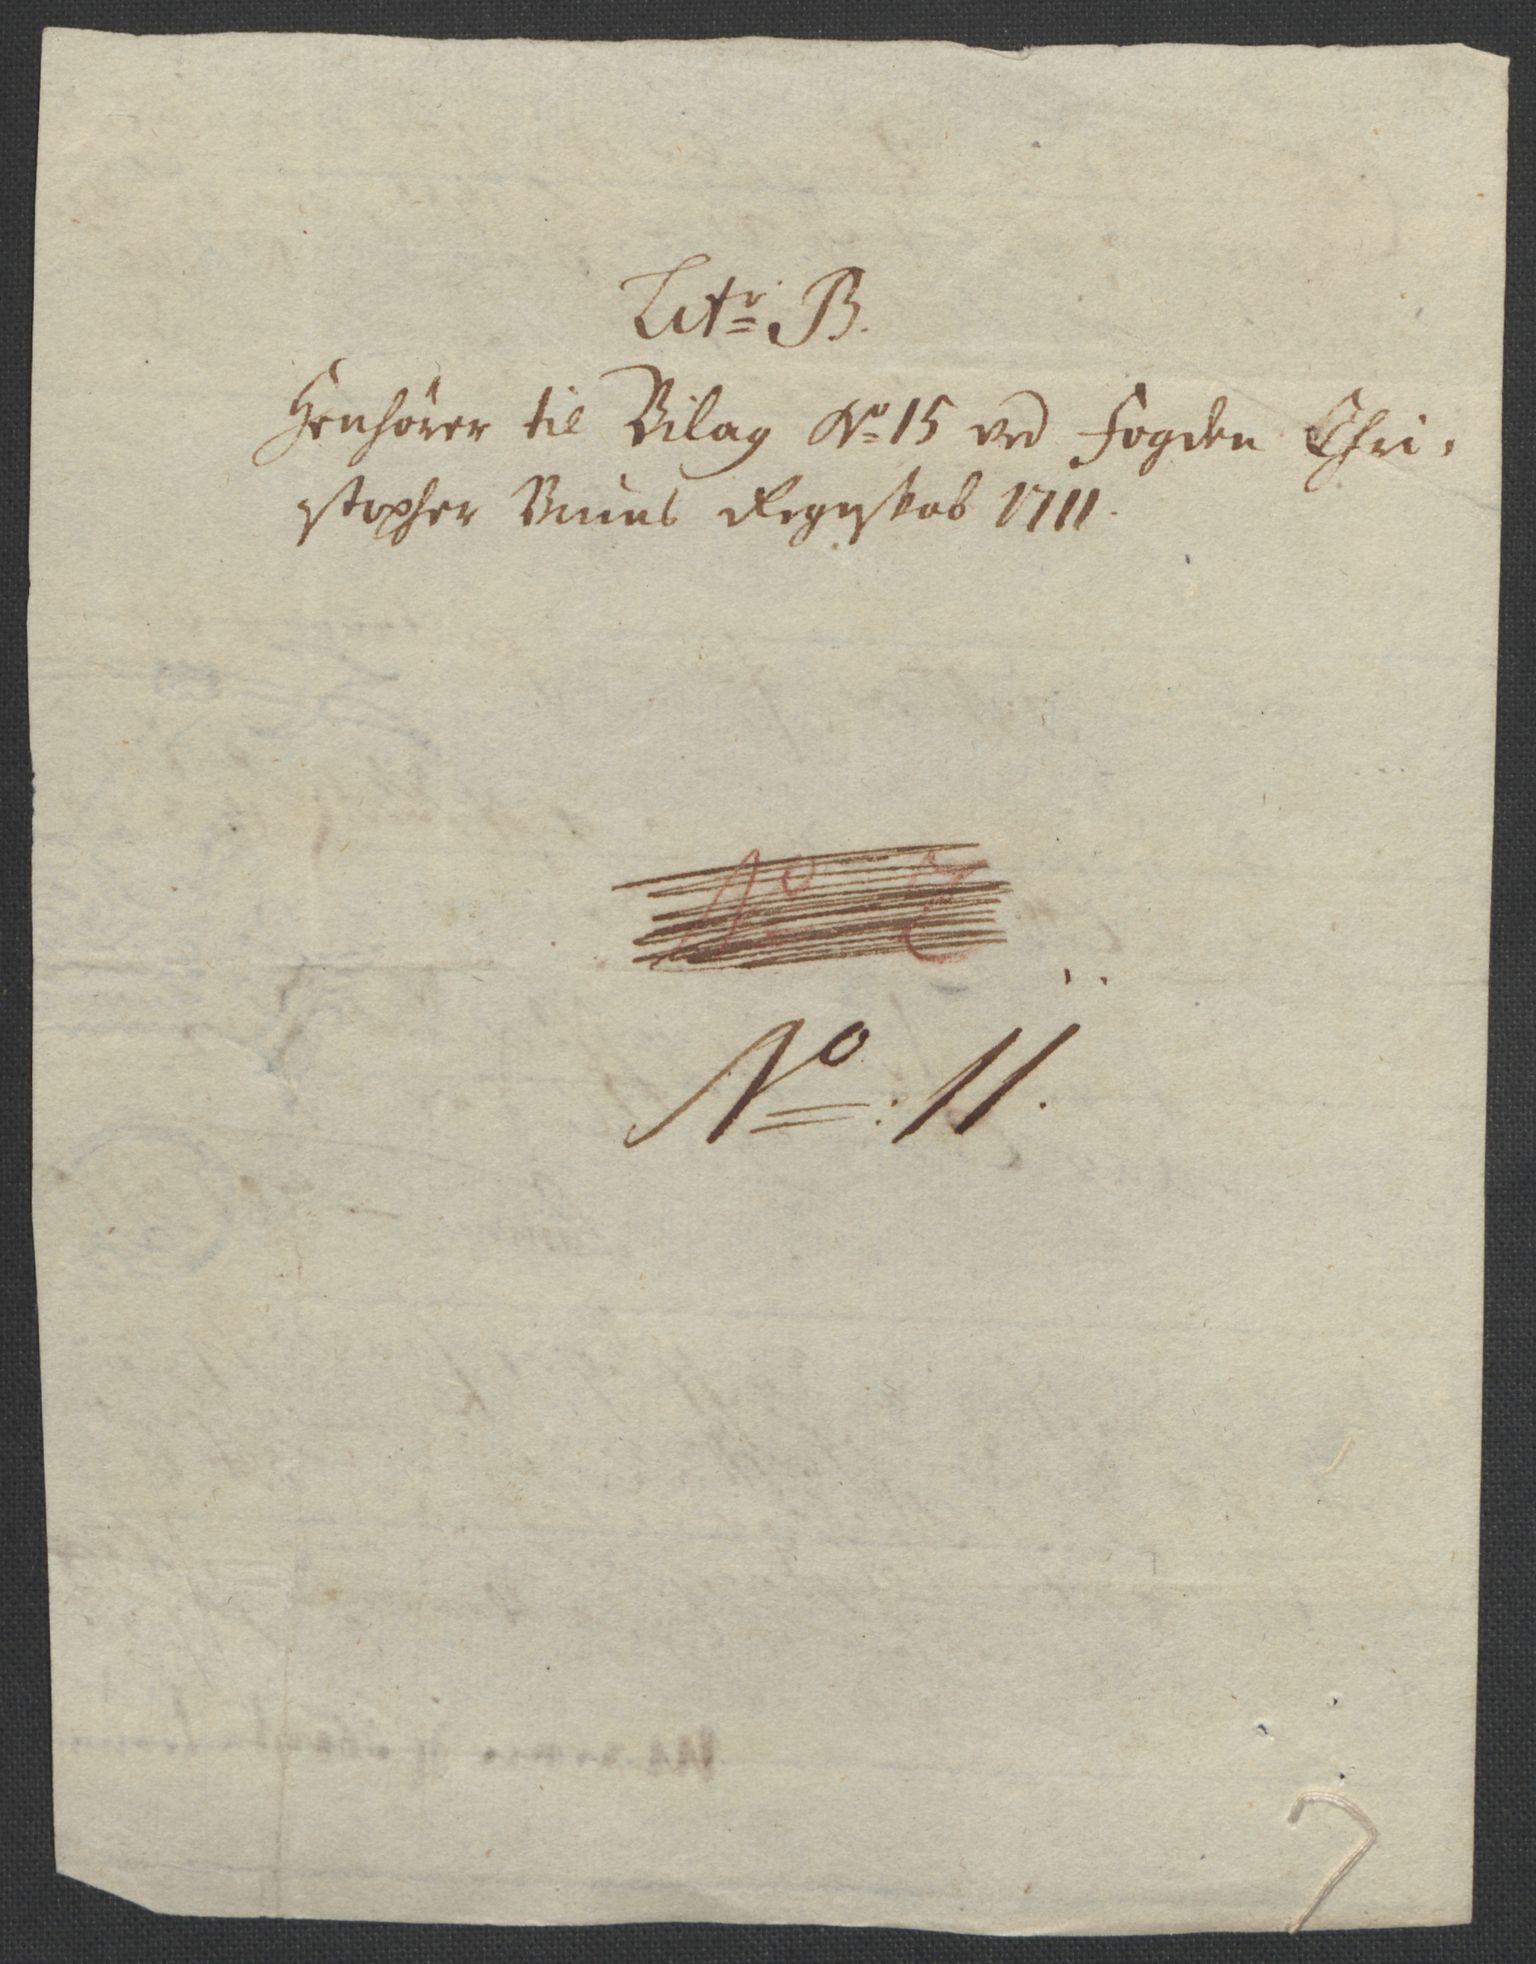 Litr B.
Henhörer til Bilag No 15 ved Fogden Chri-
stopher Bruns Regnskab 1711.
No
No: 11.